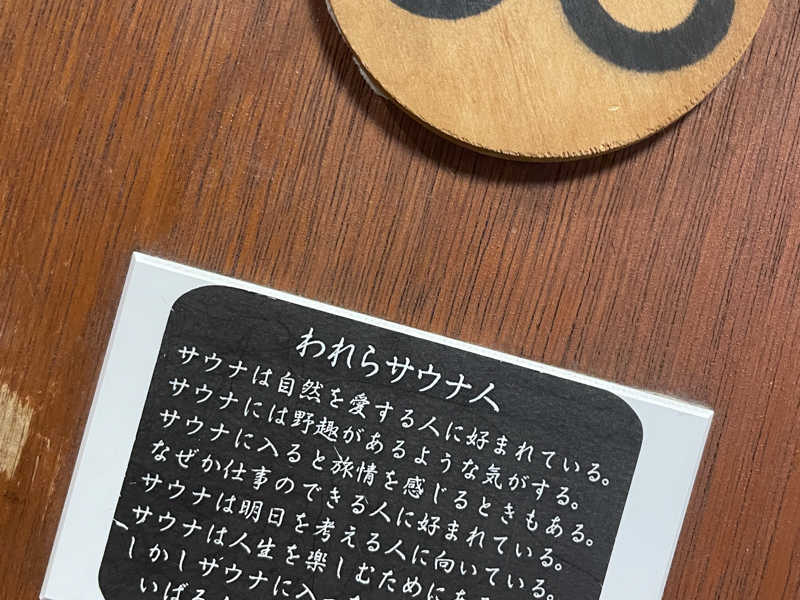 われらサウナ人
サウナは自然を愛する人に好まれている。
サウナには野趣があるような気がする。
サウナに入ると旅情を感じるときもある。
なぜか仕事のできる人に好まれている。
サウナは明日を考える人に向いている。
サウナは人生を楽しむためにある
しかしサウナに入った
いばる